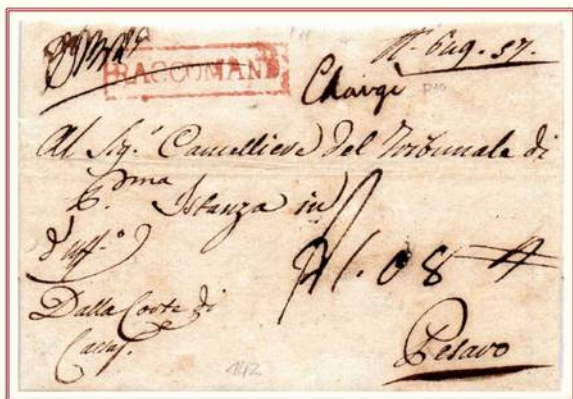 RACCOMAND
Eug. 37.
Chargè
Al Sig.r Cancelliere del Tribunale di
P.ma Istanza in
d'uff.o
1.08
Dalla Corte di
Pesaro
142